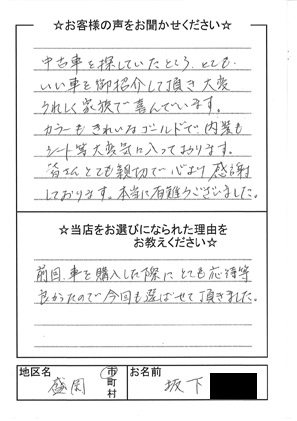 ☆お客様の声をお聞かせください☆
中古車を探していたところ、とても
いい車を御紹介して頂き大変
うれしく家族で喜んでいます。
カラーもきれいなゴールドで、内装も
シート等大変気に入っております。
皆さんとても親切で心より感謝
しております。本当に有難うございました。
☆当店をお選びになられた理由を
お教えください☆
前回、車を購入した際にとても応待等
良かったので今回も選ばせて頂きました。
地区名 盛岡 市町村 お名前 坂下